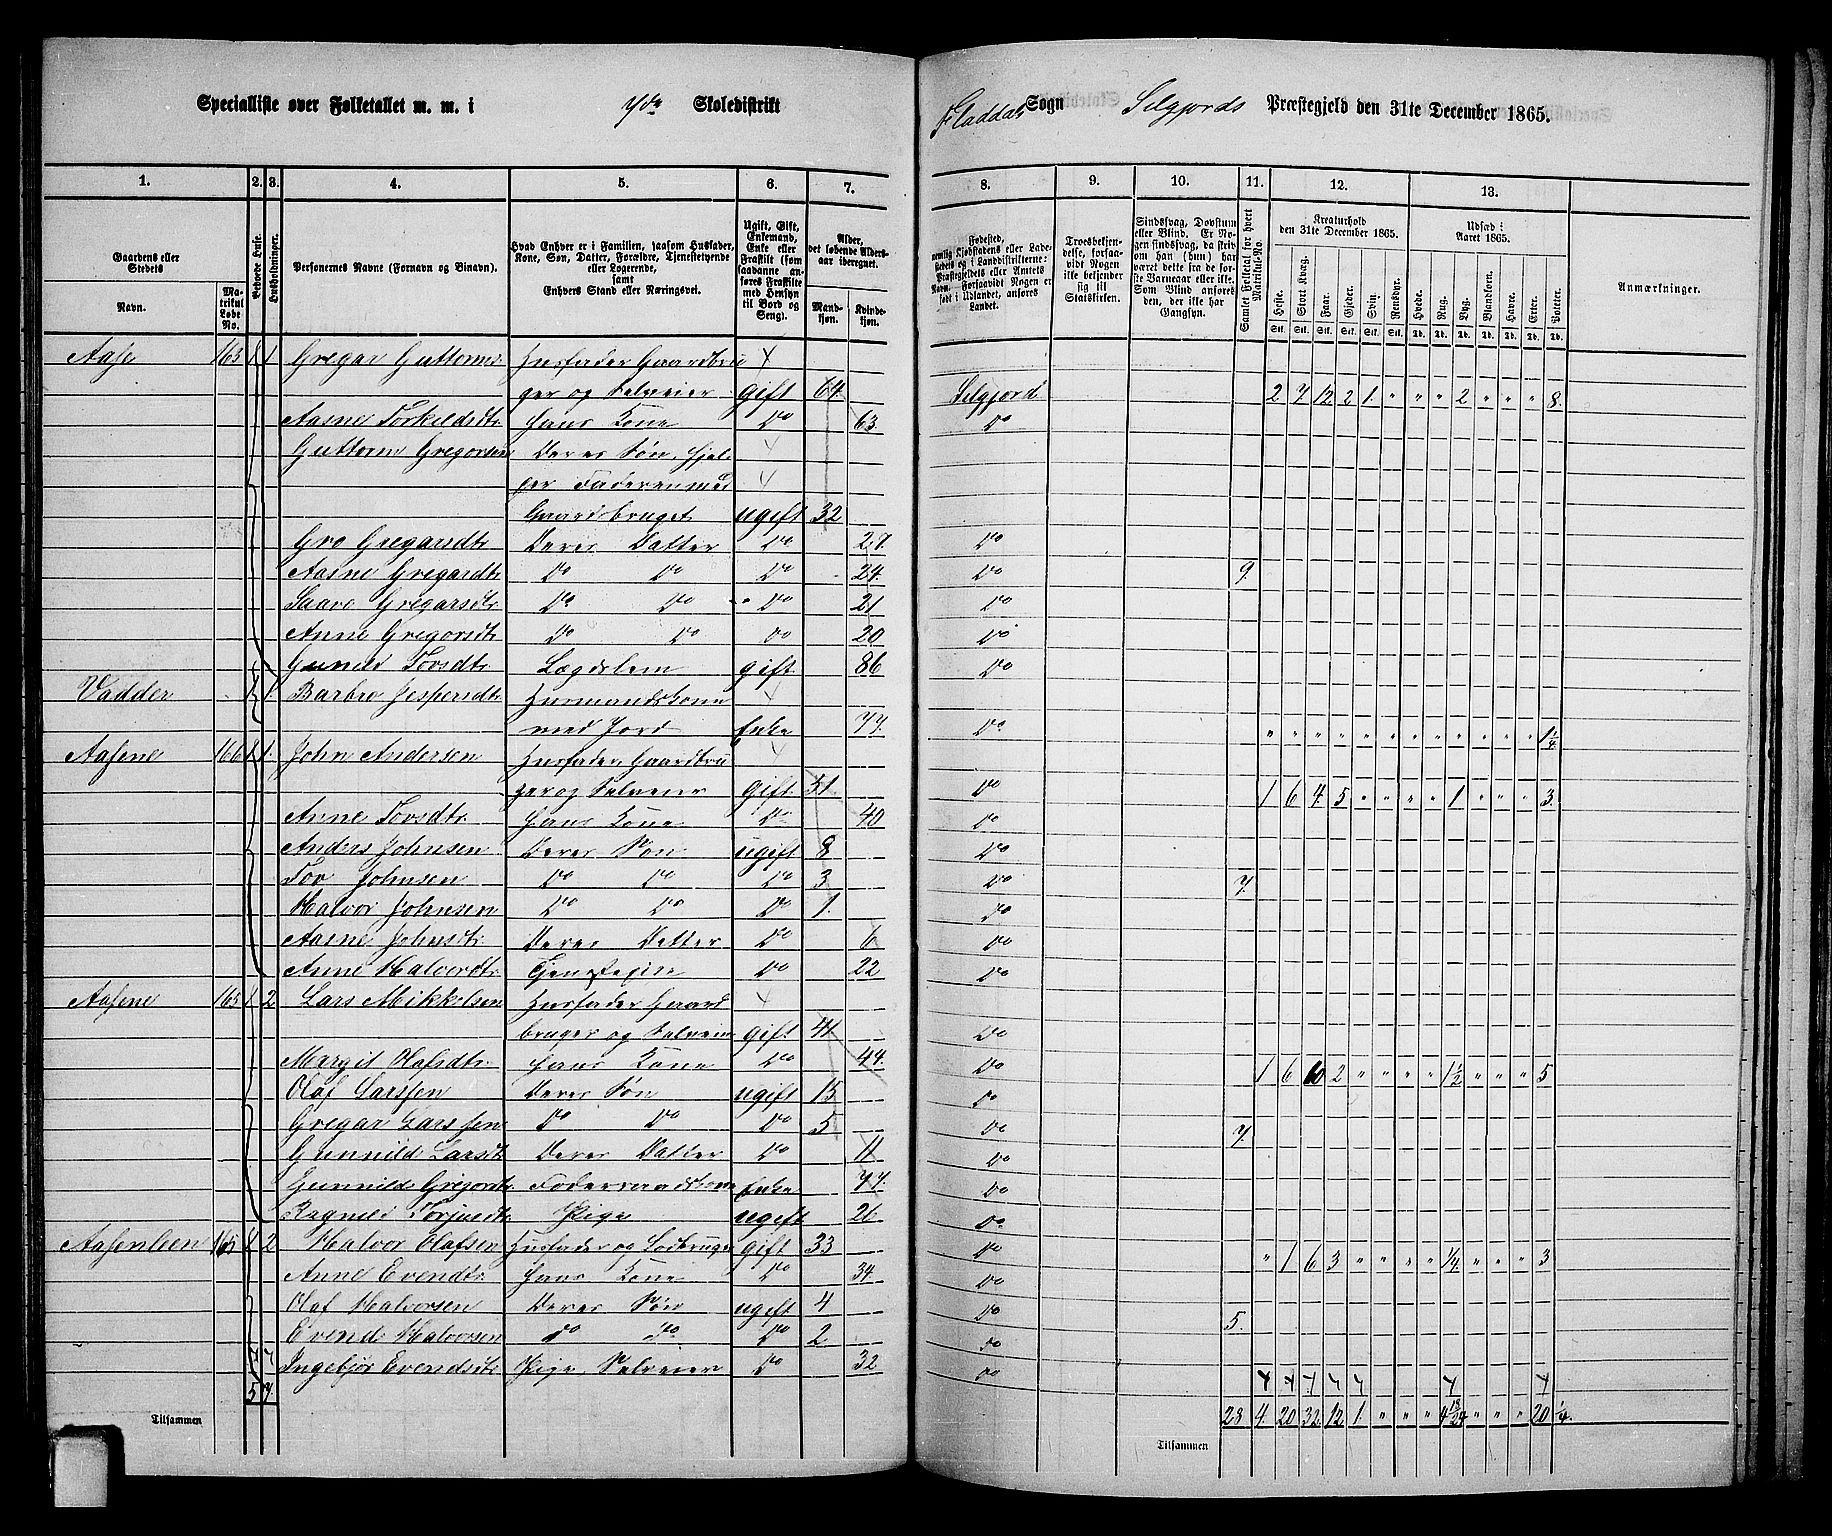 Specialliste over Folketallet m. m. i 7de Skoledistrikt
Fladdal Sogn Selgjords Præstegjeld den 31te December 1865.
1. 2. 3. 4. 5. 6. 7.
8. 9. 10. 11. 12. 13.
Gaardens eller Stedets
Navn. Matrikul Løbe No.
Beboede Huse.
Husholdninger.
Personernes Navne (Fornavn og Binavn).
Hvad Enhver er i Familien, saasom Husfader, Kone, Søn, Datter, Forældre, Tjenestetyende eller Logerende, samt Enhvers Stand eller Næringsvei.
Ugift, Gift, Enkemand, Enke eller Fraskilt (som saadanne anføres Fraskilte med Hensyn til Bord og Seng).
Alder, det løbende Aldersaar iberegnet.
Mandkjøn. Kvindekjøn.
Fødested,
Troesbekjendelse, forsaavidt Nogen ikke bekjender sig til Statskirken.
Sindssvag, Døvstum eller Blind.
Samlet Folketal for hvert Matrikul-No.
Kreaturhold den 31te December 1865.
Udsæd i Aaret 1865.
Anmærkninger.
Heste. Stort Kvæg. Faar. Gjeder. Sviin. Rensdyr. Hvede. Rug. Byg. Blandkorn. Havre. Erter. Poteter.
Aase 163 1 1 Gregar Guttorms. Husfader Gaardbru
ger og Selveier gift 64 Selgjord 2 7 12 2 1 " " " 2 " " " 8
Aasne Torkildsdtr. Hans Kone Do 63 Do
Guttorm Gregorsen Deres Søn, hjel
per Faderen med
Gaardsbruget ugift 32
Gro Gregarsdtr. Deres Datter Do 27 Do
Aasne Gregarsdtr. Do Do Do 24 Do 9.
Saave Gregarsdtr. Do Do Do 21 Do
Anne Gregorsdtr. Do Do Do 20 Do
Gunild Tovsdtr. Lægdslem gift 86 Do
Vadder 1 1 Barbro Jespersdtr. Husmandskone
med Jord Enke 77 Do " " " " " " " " " " " " 1/4
Aasene 166 1 1 John Andersen Husfader, Gaardbru
ger og Selveier gift 51 Do 1 6 4 5 " " " " 1 " " " 3
Anne Tovsdtr. Hans Kone Do 40 Do
Anders Johnsen Deres Søn ugift 8 Do
Tov Johnsen Do Do Do 3 Do 7.
Halvor Johnsen Do Do Do 1. Do
Aasne Johnsdtr. Deres Datter Do 6 Do
Anne Halvordtr. Tjenestepige Do 22 Do
Aasene 165 1 2 Lars Mikkelsen Husfader Gaard
bruger og Selveier gift 41 Do
Margit Olafsdtr. Hans Kone Do 44 Do 1 6 10 2 " " " " 1 1/2 " " " 5
Olaf Larssen Deres Søn ugift 15 Do
Gregar Larssen Do Do Do 5 Do 7.
Gunnild Larsdtr. Deres Datter Do 11 Do
Gunnild Gregorsdtr. Føderaadskone Enke 77 Do
Ragnild Torjusdtr. Pige ugift 26 Do
Aasenlien 165 1 2 Halvor Olafsen Husfader og Jodbruger gift 33 Do " 1 6 3 " " " " 1/4 " " " 3
Anne Evendtr. Hans Kone Do 34 Do
Olaf Halvorsen Deres Søn ugift 4 Do
Evend Halvorsen Do Do Do 2 Do 5.
Ingebjør Evendsdtr. Pige, Selveier Do 32 Do
Tilsammen 5 7
Tilsammen 28 4 20 32 12 1. " " " 4 19/24 " " " 20 1/4